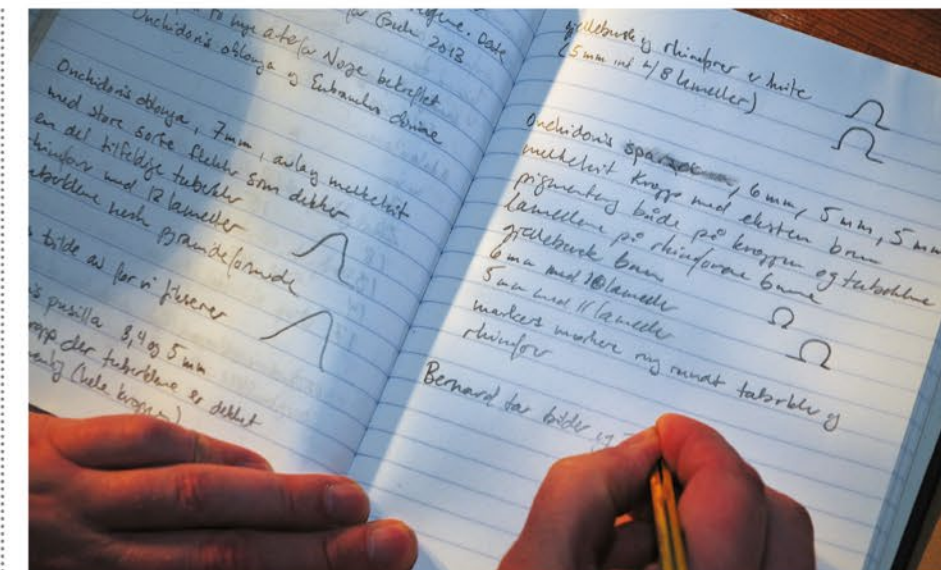 to nye arter for Norge bekreftet
for Gulen 2013
Onchidoris oblonga og Eubranchus doriae
Onchidoris oblonga, 7mm, avlang melkehvit
med store sorte flekker som dekker
en del tilfeldige tuberkler
med 12 lameller
nesten pyramideformede
bilde av før vi fikserer
pusilla 3,4 og 5 mm
der tuberklene er dekket
(hele kroppen)
gjellebusk og rhinoforer er hvite
(5mm ind m/8 lameller)
Onchidoris sparsa, 6mm, 5mm, 5mm
melkehvit kropp med eksten brun
pigmentering både på kroppen og tuberklene
lamellene på rhinoforene brune
gjellebusk brun
6mm med 10 lameller
5mm med 11 lameller
markers mørkere ring rundt tuberkler og
rhinofor
Bernard tar bilder og